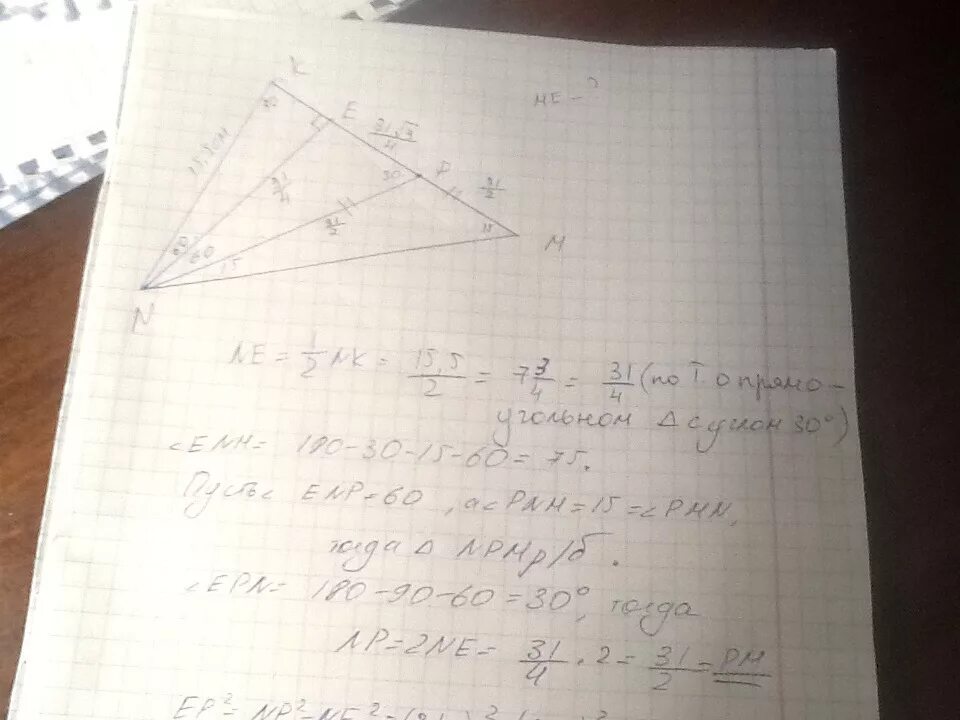 K
ME - ?
E
31√3/4
15,5 см
30
P
31/2
31/4
31/2
60
15
M
N
NE = 1/2 NK = 15,5/2 = 7 3/4 = 31/4 (по Т. о прямо-
угольном Δ с углом 30°)
∠ENM = 180-30-15-60 = 75.
Пусть ∠ENP=60, а ∠PNM=15=∠PMN,
тогда Δ NPM р/б.
∠EPN= 180-90-60=30°, тогда
NP=2NE= 31/4 · 2 = 31/2 = PM
EP²= NP²-NE² =